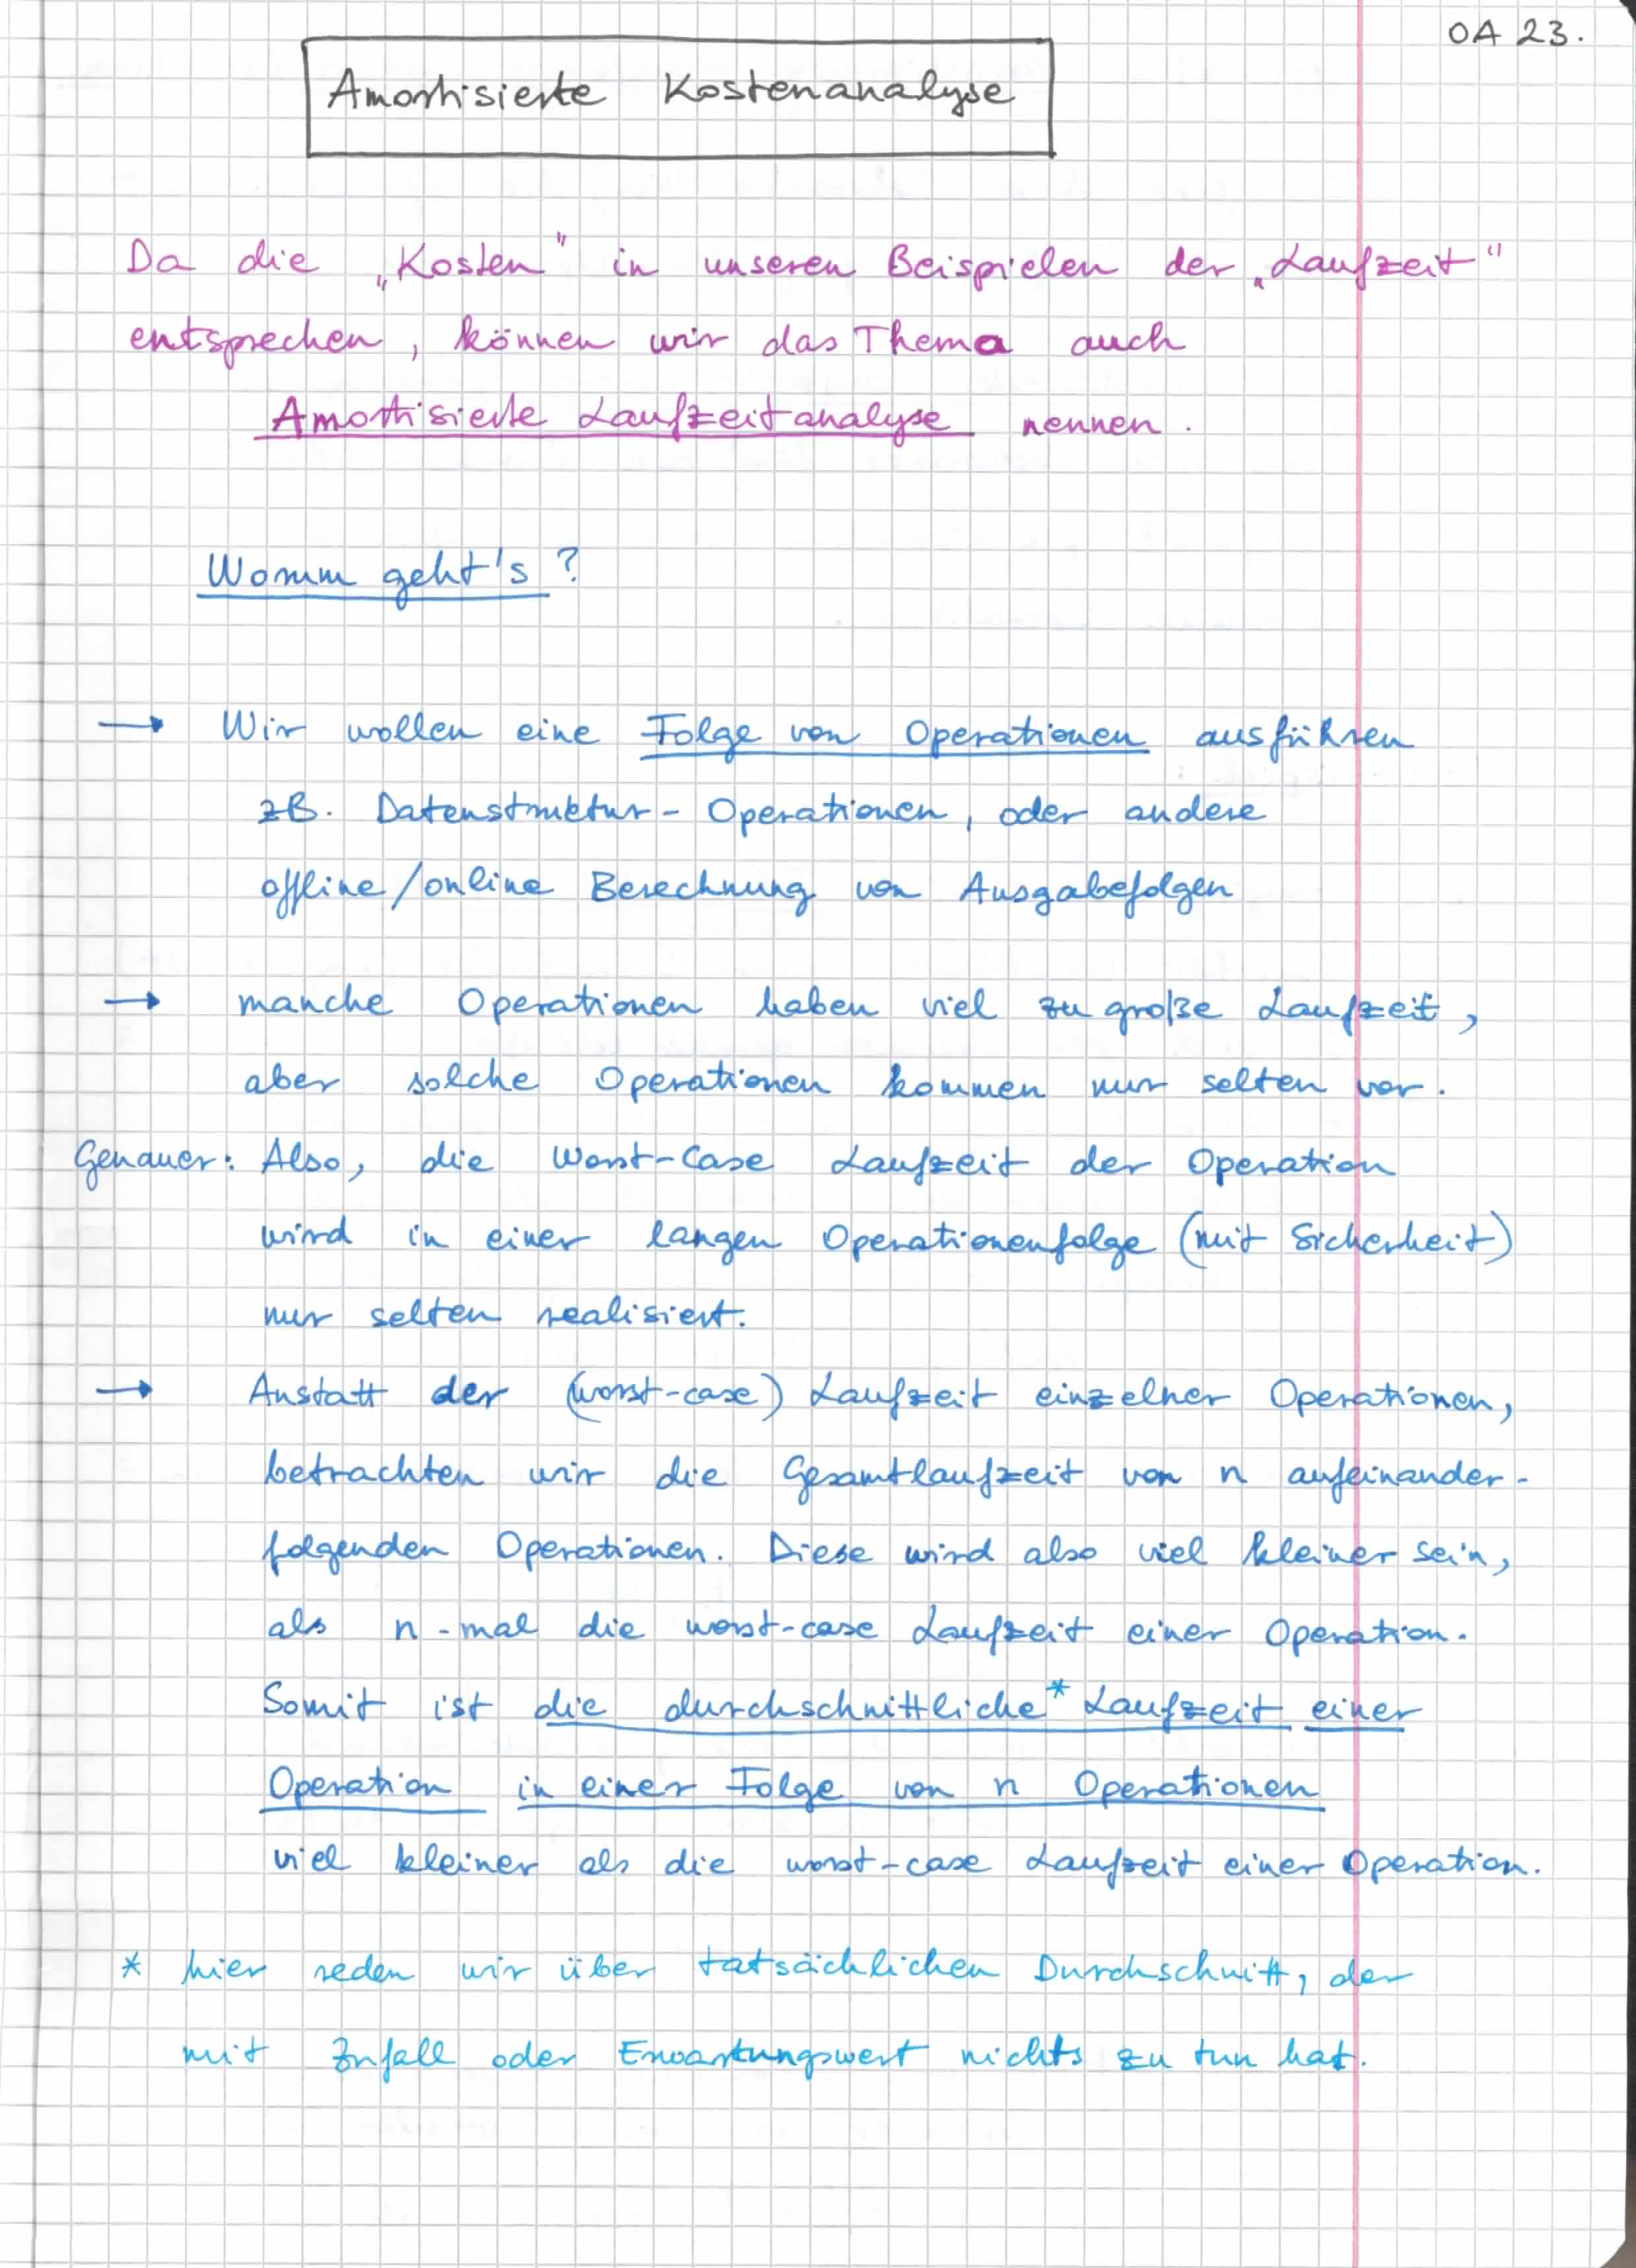 OA 23.
Amortisierte Kostenanalyse
Da die „Kosten" in unseren Beispielen der „Laufzeit"
entsprechen, können wir das Thema auch
Amortisierte Laufzeitanalyse nennen.
Worum geht's?
→ Wir wollen eine Folge von Operationen ausführen
zB. Datenstruktur-Operationen, oder andere
offline/online Berechnung von Ausgabefolgen
→ manche Operationen haben viel zu große Laufzeit,
aber solche Operationen kommen nur selten vor.
Genauer: Also, die Worst-Case Laufzeit der Operation
wird in einer langen Operationenfolge (mit Sicherheit)
nur selten realisiert.
→ Anstatt der (worst-case) Laufzeit einzelner Operationen,
betrachten wir die Gesamtlaufzeit von n aufeinander-
folgenden Operationen. Diese wird also viel kleiner sein,
als n-mal die worst-case Laufzeit einer Operation.
Somit ist die durchschnittliche* Laufzeit einer
Operation in einer Folge von n Operationen
viel kleiner als die worst-case Laufzeit einer Operation.
* hier reden wir über tatsächlichen Durchschnitt, der
mit Zufall oder Erwartungswert nichts zu tun hat.